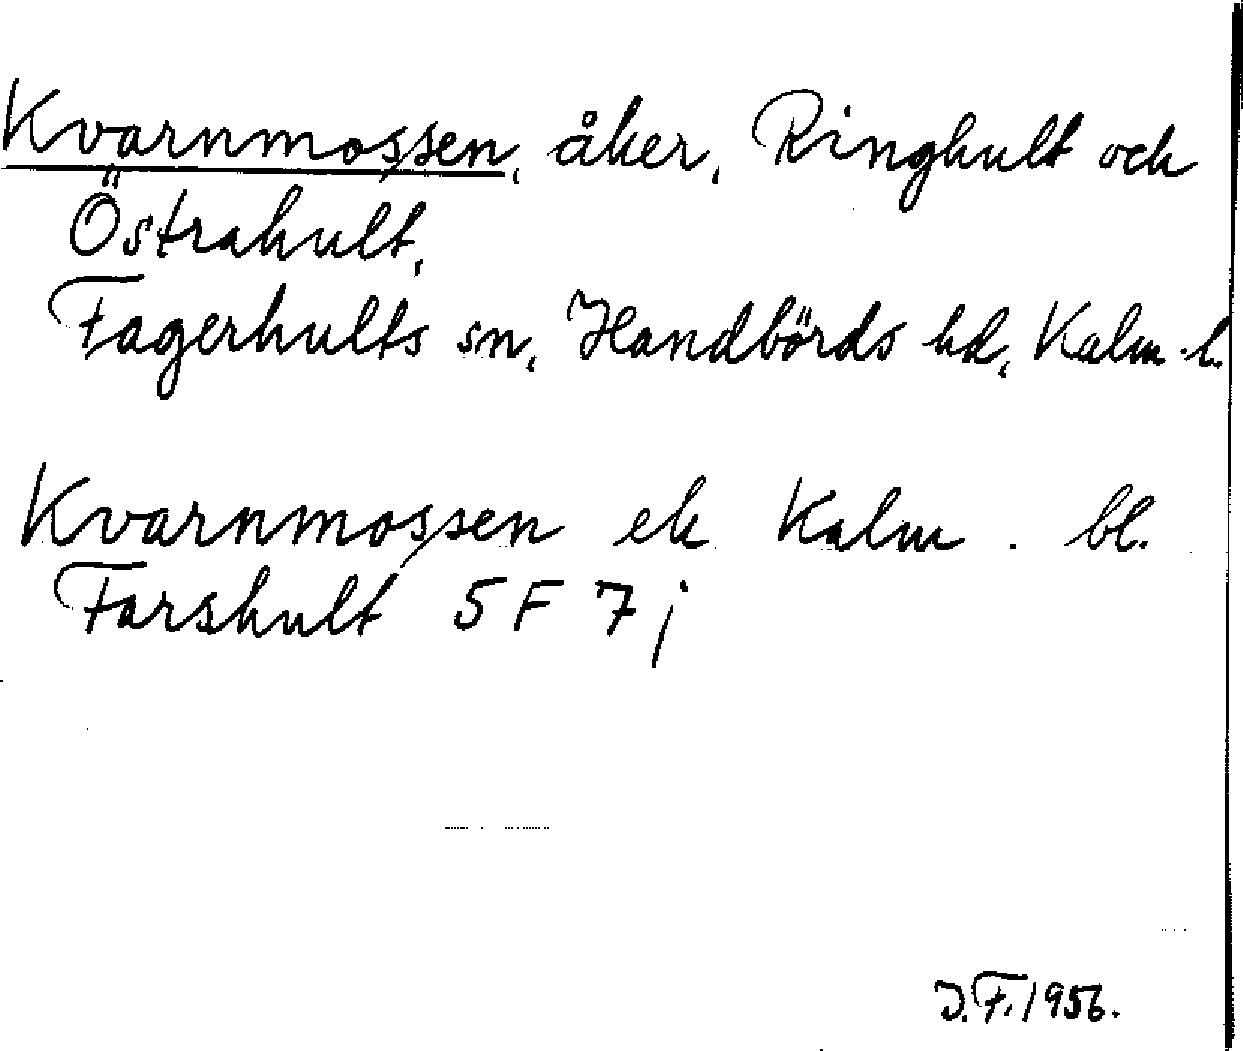 Kvarnmossen, åker, Ringhult och
Östrahult,
Fagerhults sn, Handbörds hd, Kalm. l.
Kvarnmossen ek Kalm. bl.
Farshult 5 F 7 j
J.F. 1956.